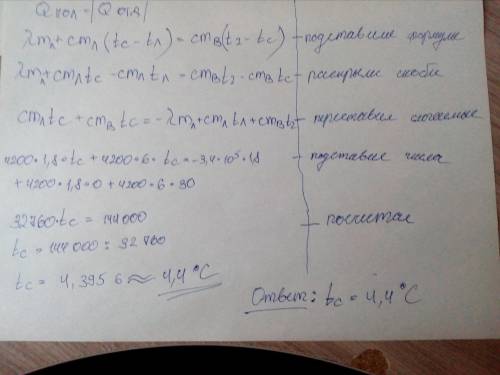 Qпол = |Qотд|
λmл + cmл(tc - tл) = cmв(t2 - tc) — подставили формулы
λmл + cmлtc - cmлtл = cmвt2 - cmвtc — раскрыли скобки
cmлtc + cmвtc = -λmл + cmлtл + cmвt2 — переставили слагаемые
4200 · 1,8 · tc + 4200 · 6 · tc = -3,4 · 10⁵ · 1,8 — подставил числа
+ 4200 · 1,8 · 0 + 4200 · 6 · 30
32760 · tc = 144000 — посчитал
tc = 144000 : 32760
tc = 4,3956 ≈ 4,4°C
Ответ: tc = 4,4°C